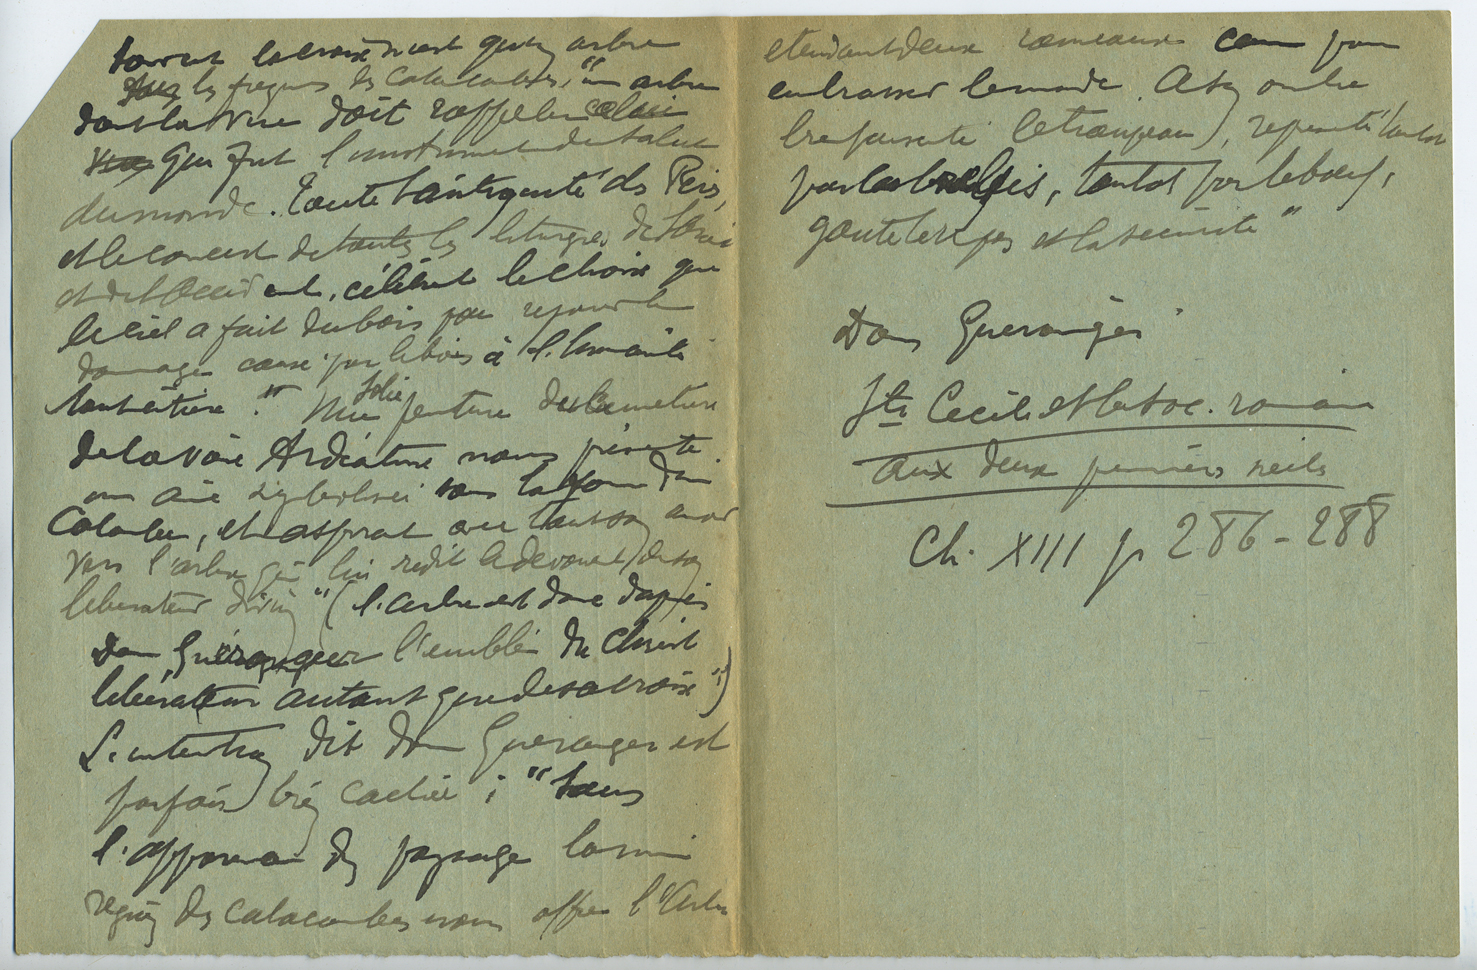 souvent la croix n'est qu'un arbre
les fresques des catacombes, "un arbre
dont la vue doit rappeler celui
qui fut l'instrument du salut
du monde. Toute l'antiquité des Pères,
et le concert de toutes les liturgies de l'Orient
et de l'Occident, célèbrent le choix que
le ciel a fait du bois pour réparer le
dommage causé par le bois à l'humanité
tout entière." Une jolie peinture du cimetière
de la voie Ardéatine nous présente
une âme symbolisée sous la forme d'une
Colombe, et aspirant avec tout son amour
vers l'arbre qui lui redit le dévouement de son
libérateur divin" (l'arbre est donc d'après
Dom Guéranger l'emblème du Christ
libérateur autant que de sa croix")
L'intention dit dom Gueranger est
parfois bien cachée ; "sous
l'apparence d'un paysage la
des catacombes nous offre l'arbre
étendant deux rameaux comme pour
embrasser le monde. A son ombre
le troupeau), représenté tantôt
par les brebis, tantôt par le boeuf,
goûte le repos et la sécurité"
Dom Gueranger
Ste Cecile et la Soc. romaine
aux deux premiers siècles
Ch. XIII p 286-288